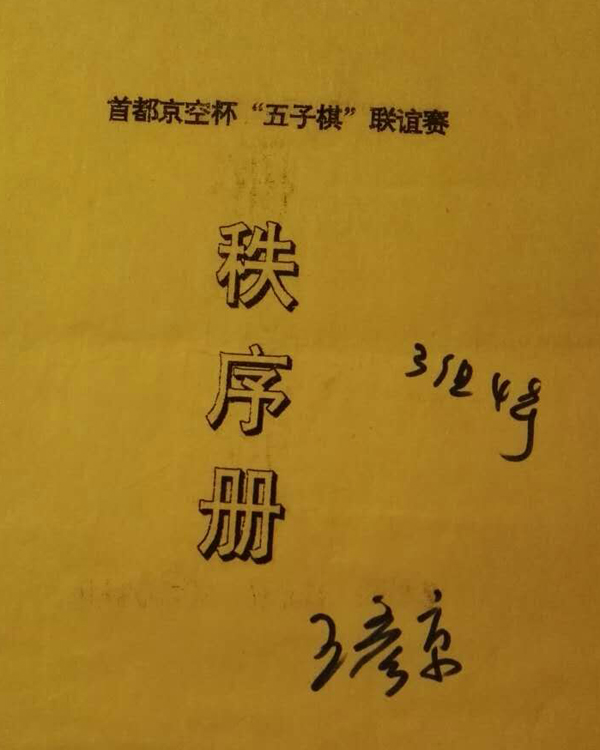 首都京空杯“五子棋”联谊赛
秩
序
册
3组4号
王彦京